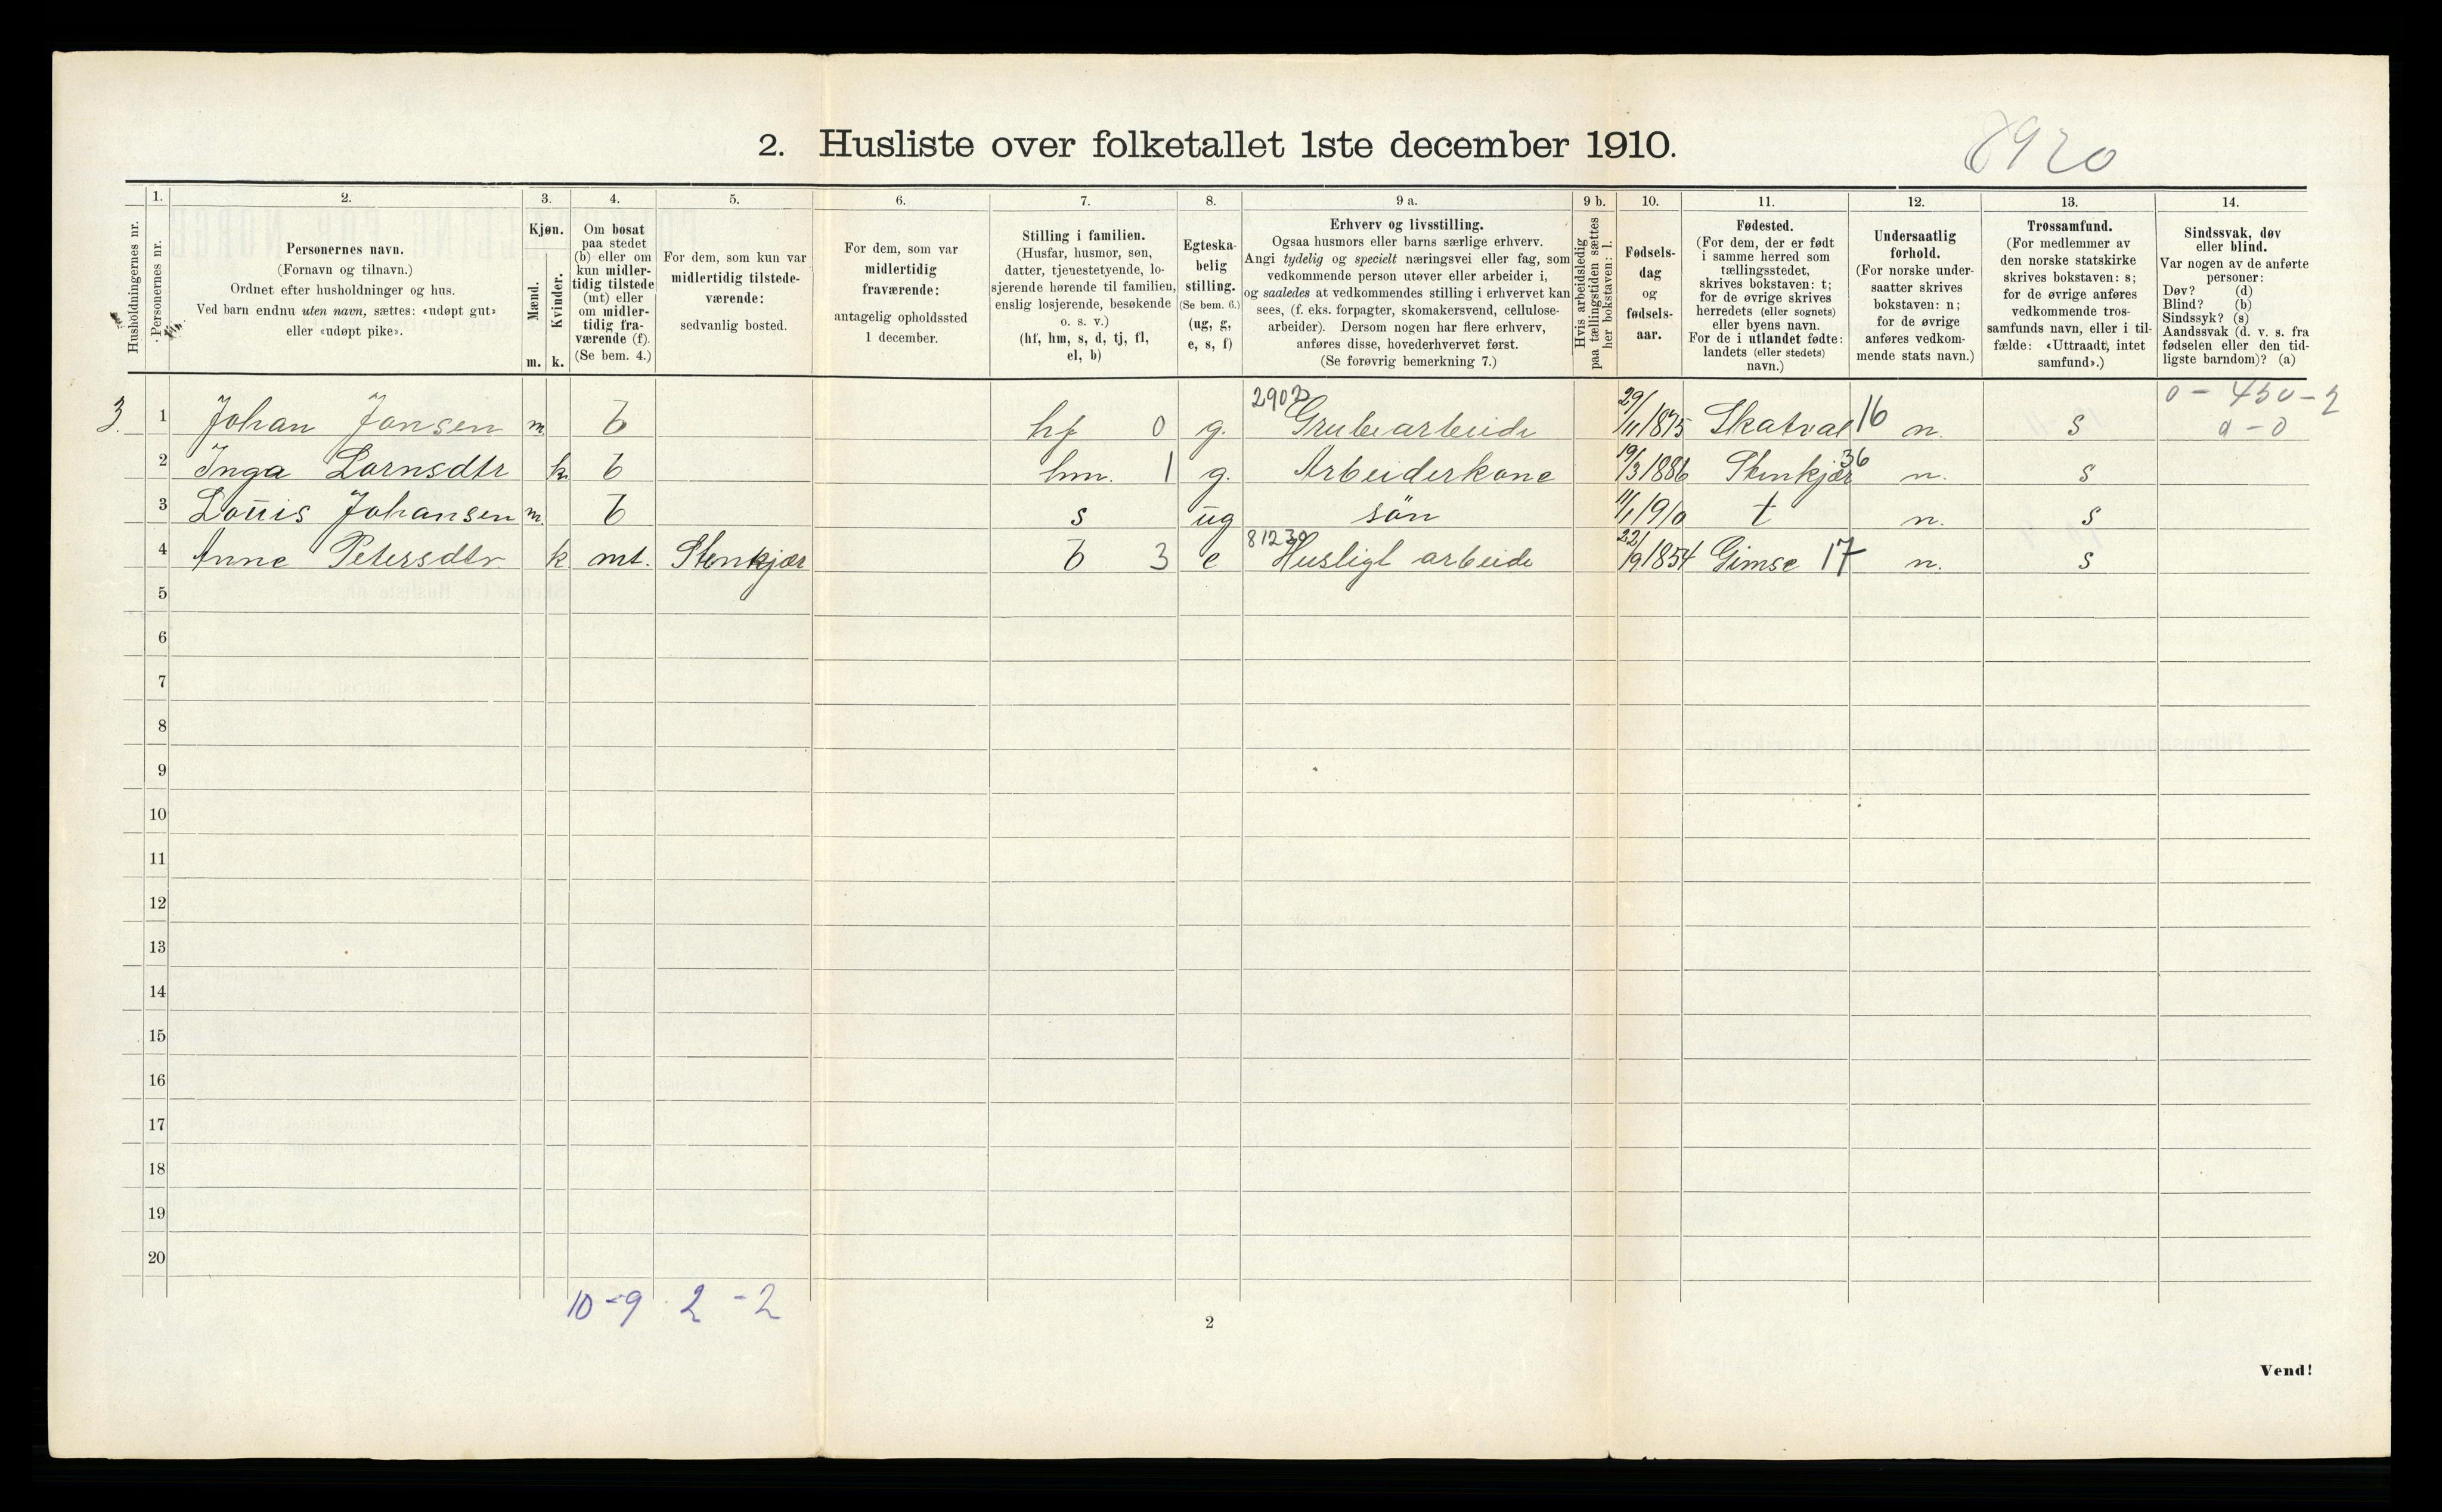 2. Husliste over folketallet 1ste december 1910.
Husholdningernes nr.
1.
Personernes nr.
2.
Personernes navn.
(Fornavn og tilnavn.)
Ordnet efter husholdninger og hus.
Ved barn endnu uten navn, sættes: «udøpt gut»
eller «udøpt pike».
3.
Kjøn.
Mænd.
Kvinder.
m. k.
4.
Om bosat
paa stedet
(b) eller om
kun midler-
tidig tilstede
(mt) eller
om midler-
tidig fra-
værende (f).
(Se bem. 4.)
5.
For dem, som kun var
midlertidig tilstede-
værende:
sedvanlig bosted.
6.
For dem, som var
midlertidig
fraværende:
antagelig opholdssted
1 december.
7.
Stilling i familien.
(Husfar, husmor, søn,
datter, tjenestetyende, lo-
sjerende hørende til familien,
enslig losjerende, besøkende
o. s. v.)
(hf, hm, s, d, tj, fl,
el, b)
8.
Egteska-
belig
stilling.
(Se bem. 6.)
(ug, g,
e, s, f)
9 a.
Erhverv og livsstilling.
Ogsaa husmors eller barns særlige erhverv.
Angi tydelig og specielt næringsvei eller fag, som
vedkommende person utøver eller arbeider i,
og saaledes at vedkommendes stilling i erhvervet kan
sees, (f. eks. forpagter, skomakersvend, cellulose-
arbeider). Dersom nogen har flere erhverv,
anføres disse, hovederhvervet først.
(Se forøvrig bemerkning 7.)
9 b.
Hvis arbeidsledig
paa tællingstiden sættes
her bokstaven: l.
10.
Fødsels-
dag
og
fødsels-
aar.
11.
Fødested.
(For dem, der er født
i samme herred som
tællingsstedet,
skrives bokstaven: t;
for de øvrige skrives
herredets (eller sognets)
eller byens navn.
For de i utlandet fødte:
landets (eller stedets)
navn.)
12.
Undersaatlig
forhold.
(For norske under-
saatter skrives
bokstaven: n;
for de øvrige
anføres vedkom-
mende stats navn.)
13.
Trossamfund.
(For medlemmer av
den norske statskirke
skrives bokstaven: s;
for de øvrige anføres
vedkommende tros-
samfunds navn, eller i til-
fælde: «Uttraadt, intet
samfund».)
14.
Sindssvak, døv
eller blind.
Var nogen av de anførte
personer:
Døv? (d)
Blind? (b)
Sindssyk? (s)
Aandssvak (d. v. s. fra
fødselen eller den tid-
ligste barndom)? (a)
3. 1 Johan Jansen m b hf 0 g. Grubearbeide 29/11 1875 Skatval 16 n. s 0 - 0
2 Inga Larnsdtr k b hm. 1 g. Arbeiderkone 19/3 1886 Stenkjær 36 n. s
3 Louis Johansen m b s ug sön 11/1 1910 t n. s
4 Anne Petersdtr k mt. Stenkjær b 3 e 81230 Husligt arbeide 22/9 1854 Gimse 17 n. s
5
6
7
8
9
10
11
12
13
14
15
16
17
18
19
20
10-9 2-2
2
Vend!